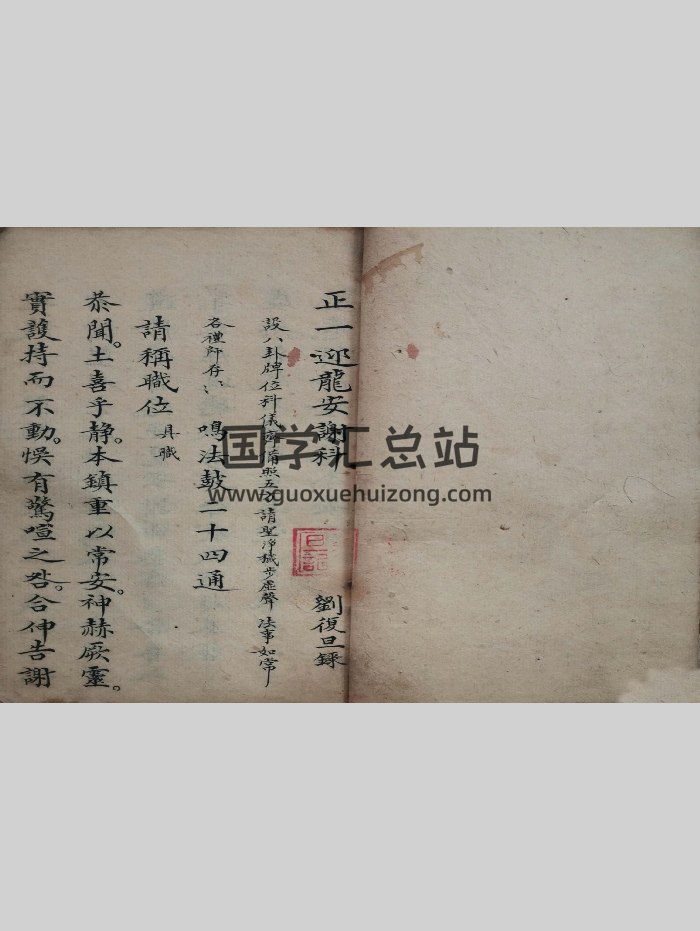 正一迎龍安謝科 劉復旦録
設八卦牌位科儀齊備照五方請聖淨穢步虛聲 法事如常
各禮師存〻 鳴法鼓二十四通
請稱職位 具職
恭聞。土喜乎静。本鎮重以常安。神赫厥靈。
實護持而不動。悞有驚喧之咎。合伸告謝
国学汇总站
www.guoxuehuizong.com